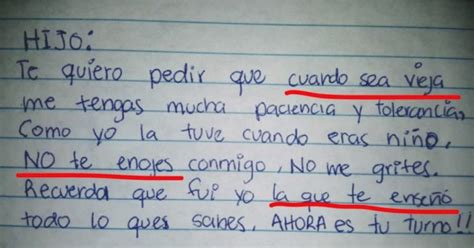 HIJO:
Te quiero pedir que cuando sea vieja
me tengas mucha paciencia y tolerancia,
Como yo la tuve cuando eras niño.
NO te enojes conmigo, NO me grites.
Recuerda que fui yo la que te enseñó
todo lo ques sabes, AHORA es tu turno!!